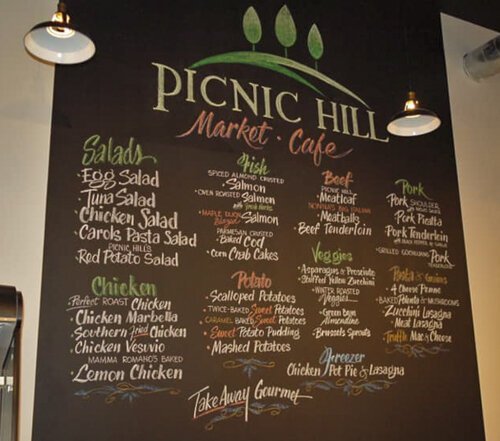 PICNIC HILL
Market · Cafe
Salads
· Egg Salad
· Tuna Salad
· Chicken Salad
· Carols Pasta Salad
PICNIC HILL'S
· Red Potato Salad
Chicken
· Perfect ROAST Chicken
· Chicken Marbella
· Southern Fried Chicken
· Chicken Vesuvio
MAMMA ROMANO'S BAKED
· Lemon Chicken
Fish
SPICED ALMOND CRUSTED
· Salmon
· OVEN ROASTED Salmon
· MAPLE Glazed Salmon
PARMESAN CRUSTED
· Baked Cod
· Corn Crab Cakes
Potato
· Scalloped Potatoes
· TWICE-BAKED Sweet Potatoes
· CARAMEL BAKED Sweet Potatoes
· Sweet Potato Pudding
· Mashed Potatoes
Beef
PICNIC HILL
· Meatloaf
· Meatballs
· Beef Tenderloin
Veggies
· Asparagus & Prosciuto
· Stuffed Yellow Zucchini
· WINTER ROASTED
Veggies
· Green Bean
Almondine
· Brussels Sprouts
Pork
· Pork SHOULDER
· Pork Picatta
· Pork Tenderloin
· GRILLED Pork
TENDERLOIN
Pasta & Grains
· 4 Cheese Penne
· BAKED & MUSHROOMS
· Zucchini Lasagna
· Meat Lasagna
· Truffle Mac & Cheese
Freezer
Chicken Pot Pie & Lasagna
Take Away Gourmet